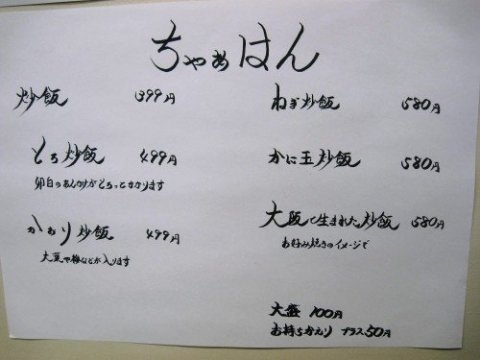 ちゃあはん
炒飯 399円
とろ炒飯 499円
卵白のあんかけがとろっとかかります
かおり炒飯 499円
大葉や梅などが入ります
ねぎ炒飯 580円
かに玉炒飯 580円
大阪で生まれた炒飯 580円
お好み焼きのイメージで
大盛 100円
お持ちかえり プラス50円